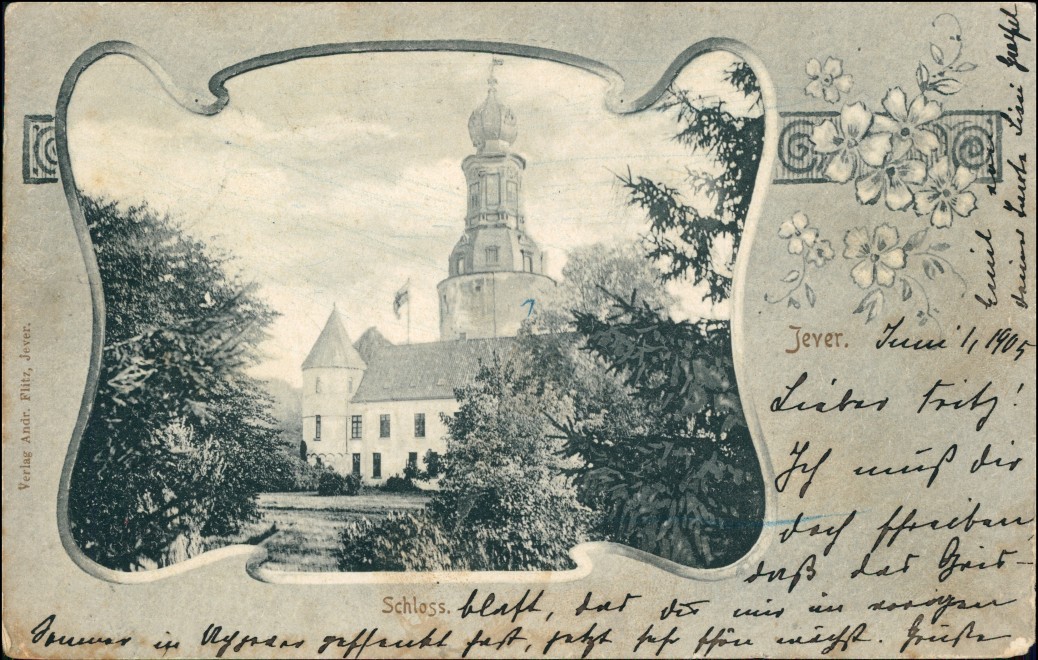 Verlag Andr. Flitz, Jever.
Jever. Juni 1, 1905
Lieber Fritz!
Ich muß dir
doch schreiben,
daß das Geis-
Schloss. blatt, das du mir im vorigen
Sommer in Upjever geschenkt hast, jetzt sehr schön wächst. Grüße
Emil von
deiner Tante Lisi